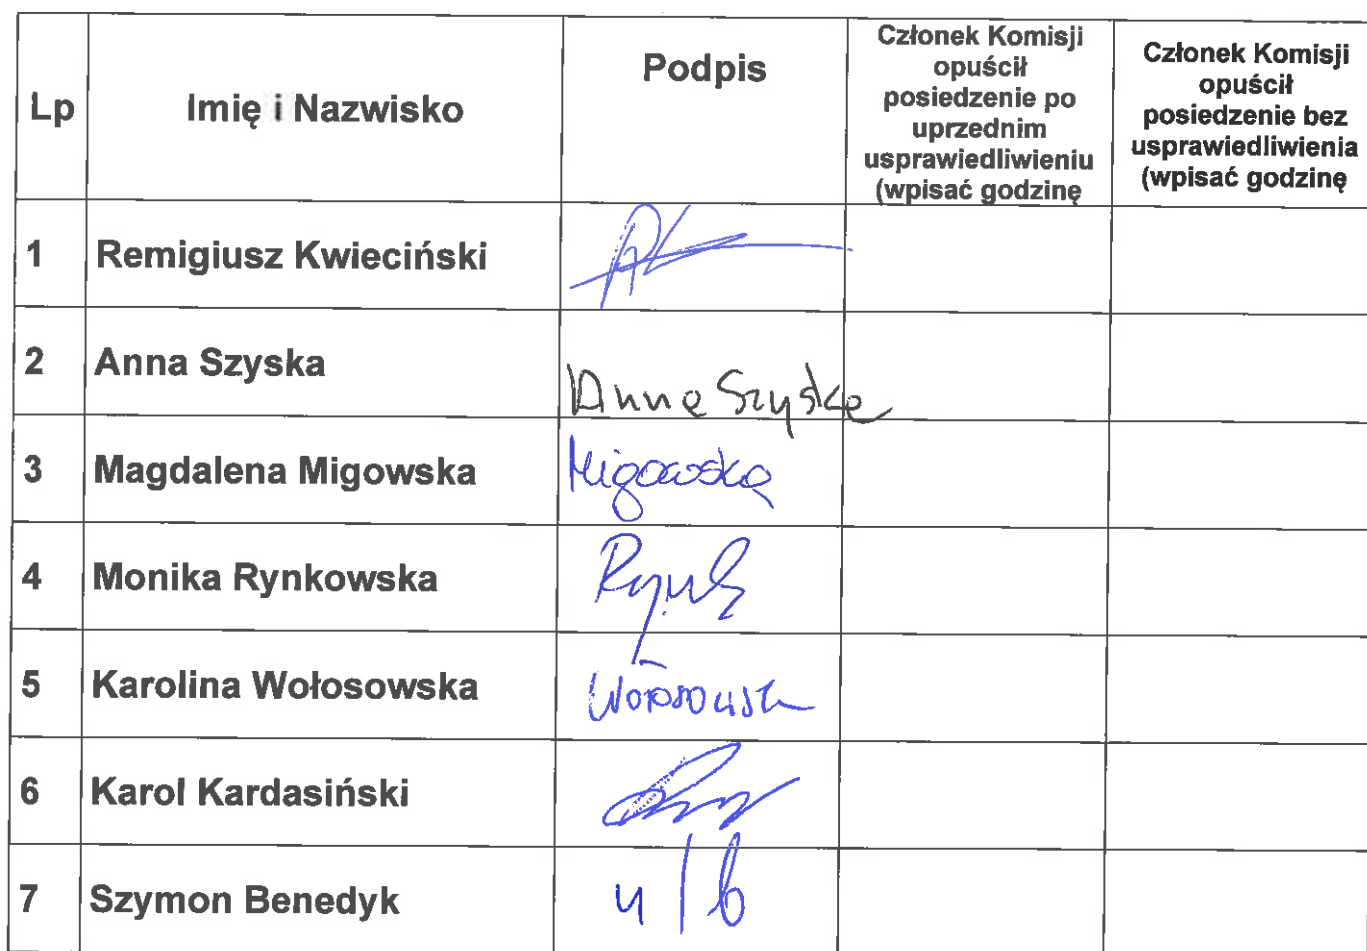 Lp
Imię i Nazwisko
Podpis
Członek Komisji
opuścił
posiedzenie po
uprzednim
usprawiedliwieniu
(wpisać godzinę
Członek Komisji
opuścił
posiedzenie bez
usprawiedliwienia
(wpisać godzinę
1 Remigiusz Kwieciński
2 Anna Szyska Anna Szyska
3 Magdalena Migowska Migowska
4 Monika Rynkowska
5 Karolina Wołosowska
6 Karol Kardasiński
7 Szymon Benedyk